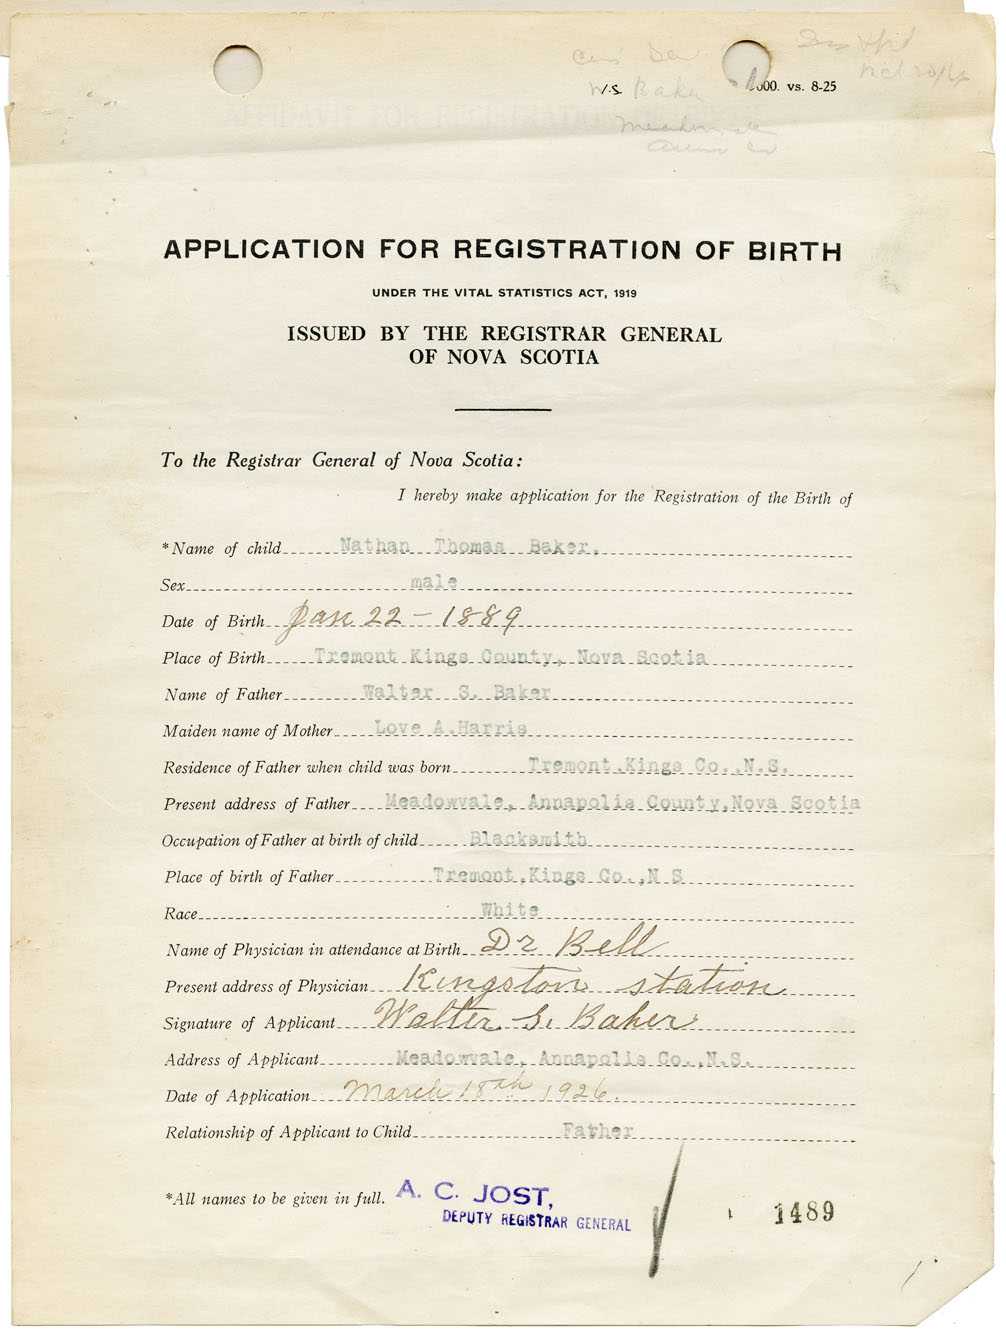 W.S.
000. vs. 8-25
Baker
AFFIDAVIT FOR REGISTRATION
APPLICATION FOR REGISTRATION OF BIRTH
UNDER THE VITAL STATISTICS ACT, 1919
ISSUED BY THE REGISTRAR GENERAL
OF NOVA SCOTIA
To the Registrar General of Nova Scotia:
I hereby make application for the Registration of the Birth of
*Name of child Nathan Thomas Baker.
Sex male
Date of Birth Jan 22 - 1889
Place of Birth Tremont Kings County, Nova Scotia
Name of Father Walter S. Baker
Maiden name of Mother Love A.Harris
Residence of Father when child was born Tremont,Kings Co.,N.S.
Present address of Father Meadowvale, Annapolis County,Nova Scotia
Occupation of Father at birth of child Blacksmith
Place of birth of Father Tremont,Kings Co.,N S
Race White
Name of Physician in attendance at Birth Dr Bell
Present address of Physician Kingston station
Signature of Applicant Walter S. Baker
Address of Applicant Meadowvale, Annapolis Co.,N.S.
Date of Application March 18th 1926.
Relationship of Applicant to Child Father
*All names to be given in full.
A. C. JOST,
DEPUTY REGISTRAR GENERAL
1489